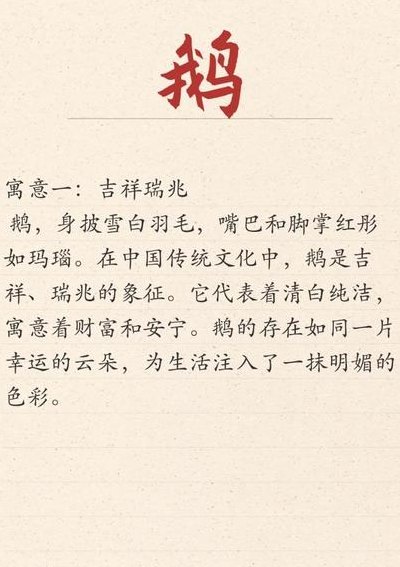 鹅
寓意一：吉祥瑞兆
鹅，身披雪白羽毛，嘴巴和脚掌红彤
如玛瑙。在中国传统文化中，鹅是吉
祥、瑞兆的象征。它代表着清白纯洁，
寓意着财富和安宁。鹅的存在如同一片
幸运的云朵，为生活注入了一抹明媚的
色彩。